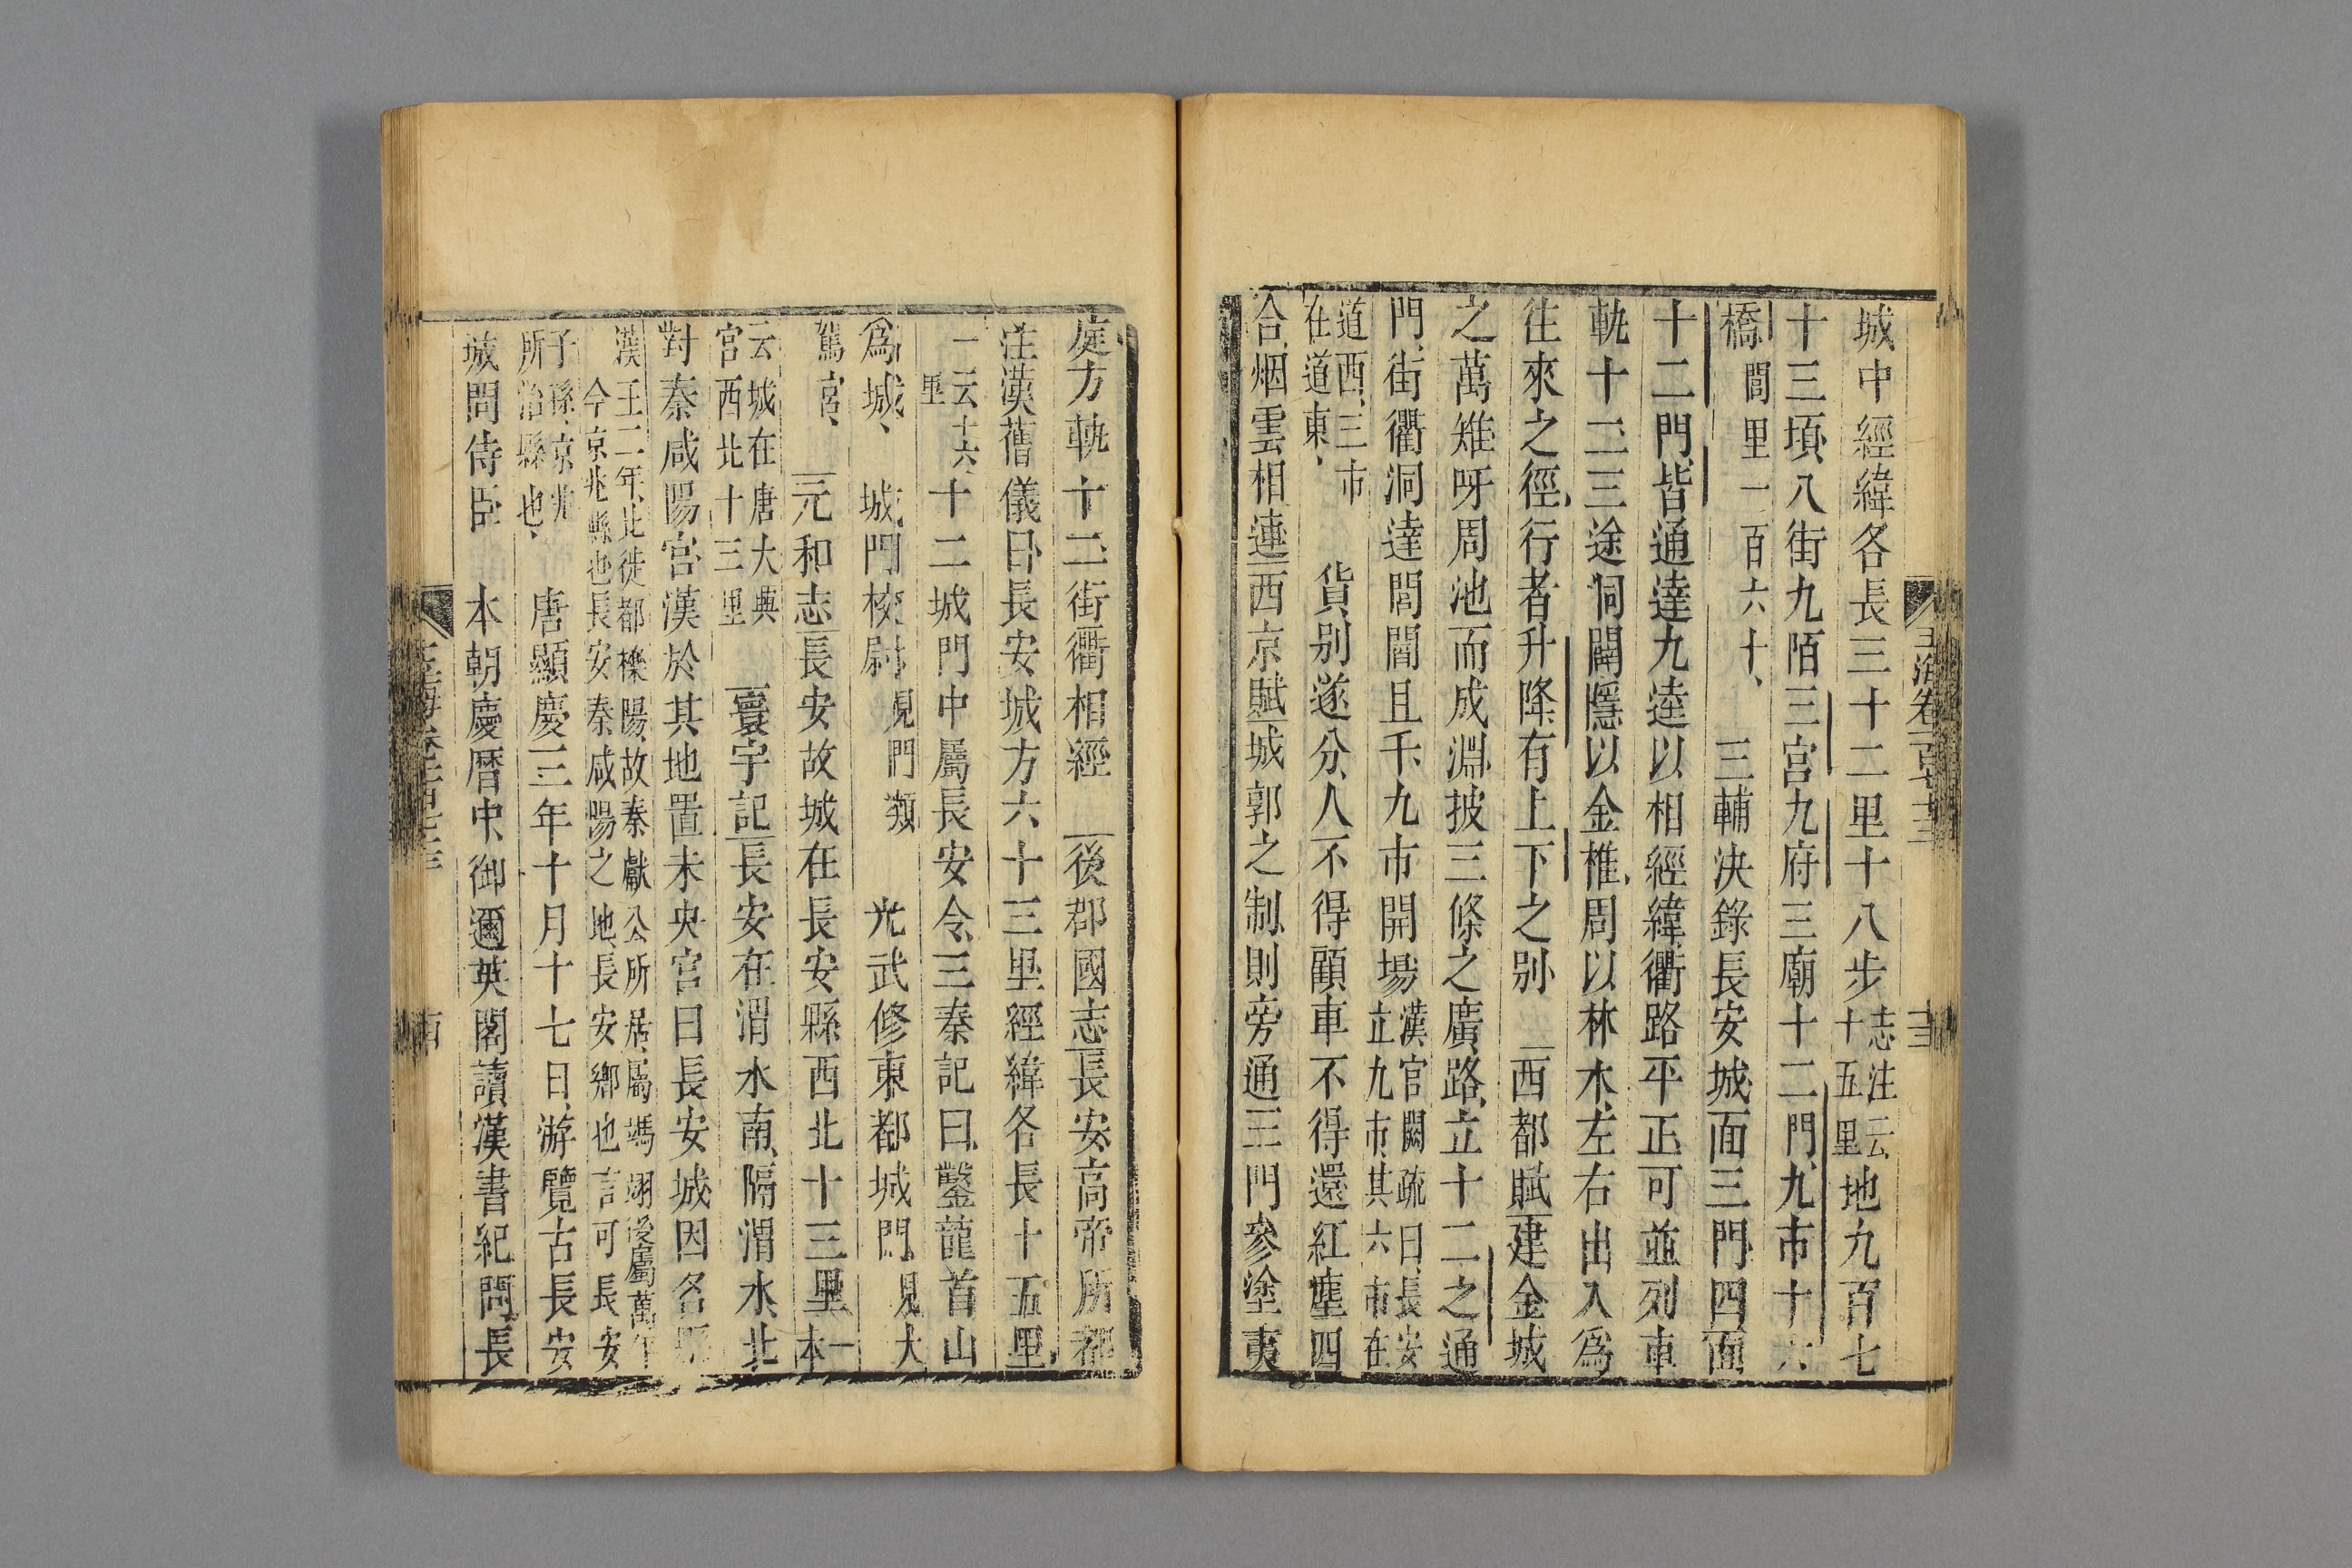 城中經緯各長三十二里十八步志注云十五里地九百七
十三頃八街九陌三宮九府三廟十二門九市十六
橋閭里一百六十三輔決錄長安城面三門四面
十二門皆通達九逵以相經緯衢路平正可並列車
軌十二三途洞闢隱以金椎周以林木左右出入為
往來之徑行者升降有上下之别西都賦建金城
之萬雉呀周池而成淵披三條之廣路立十二之通
門街衢洞達閭閻且千九市開場漢官闕疏曰長安立九市其六市在
道西三市在道東貨别遂分人不得顧車不得還紅塵四
合烟雲相連西京賦城郭之制則旁通三門參塗夷
玉海卷一百七十三
十三
庭方軌十二街衢相經後郡國志長安高帝所都
注漢舊儀曰長安城方六十三里經緯各長十五里
一云十六里十二城門中屬長安令三秦記曰鑿龍首山
為城城門校尉見門類光武修東都城門見大
駕宮元和志長安故城在長安縣西北十三里一本
云城在唐大興宮西北十三里寰宇記長安在渭水南隔渭水北
對秦咸陽宮漢於其地置未央宮曰長安城因名縣
漢王二年北徙都櫟陽故秦獻公所居屬馮翊後屬萬年今京兆縣也長安秦咸陽之地長安鄉也言可長安
子孫京兆所治縣也唐顯慶三年十月十七日游覽古長安
城問侍臣本朝慶曆中御邇英閣讀漢書紀問長